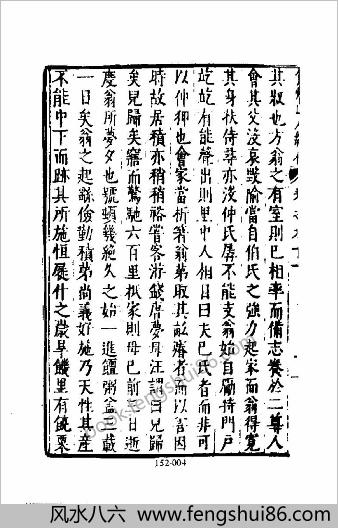 其取也方翁之有室則已相率而備志養於二尊人
會其父沒哀毀踰當自伯氏之強力起家而翁得寬
其身扶侍尋亦沒仲氏孱不能支翁始自勵持門戶
訖訖有能聲出則里中人相目曰夫已氏者而非可
以仲狎也會家當析箸翁第取其敝瘠者而以善因
時故居積亦稍稍裕嘗客游錢唐夢母汪謂曰兒歸
矣見歸矣寤而驚馳六百里抵家則母已前一日逝
慶翁所夢夕也號頓幾絕久之始一進饘粥盆
一日矣翁之起繇儉勤積第尚義好施乃天性其產
不能中下而跡其所施恒屣什之歲旱饑里有饒粟
152-004
book.fengshui86.com
风水八六 www.fengshui86.com